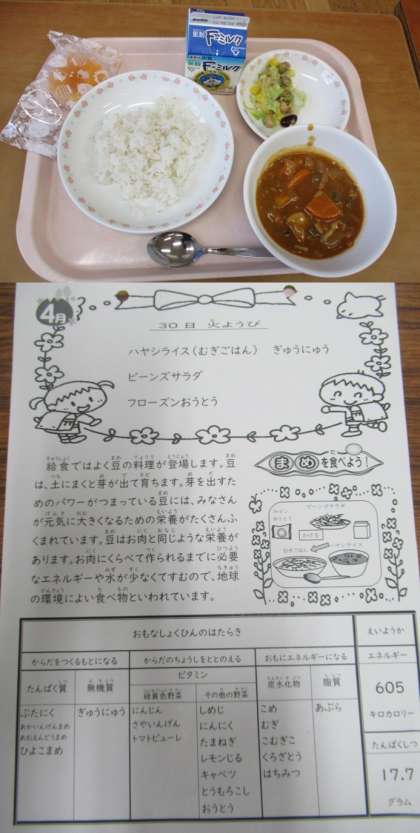 Fミルク
Fミルク
4月
30日 火ようび
ハヤシライス(むぎごはん) ぎゅうにゅう
ビーンズサラダ
フローズンおうとう
給食ではよく豆の料理が登場します。豆
は、土にまくと芽が出て育ちます。芽を出すた
めのパワーがつまっている豆には、みなさん
が元気に大きくなるための栄養がたくさんふ
くまれています。豆はお肉と同じような栄養が
あります。お肉にくらべて作られるまでに必要
なエネルギーや水が少なくてすむので、地球
の環境によい食べ物といわれています。
まめを食べよう!
ビーンズサラダ
おもなしょくひんのはたらき
えいようか
からだをつくるもとになる
からだのちょうしをととのえる
おもにエネルギーになる
エネルギー
たんぱく質
無機質
ビタミン
緑黄色野菜
その他の野菜
炭水化物
脂質
605
キロカロリー
たんぱくしつ
17.7
グラム
ぶたにく
あかいんげんまめ
あおえんどうまめ
ひよこまめ
ぎゅうにゅう
にんじん
さやいんげん
トマトピューレ
しめじ
にんにく
たまねぎ
レモンじる
キャベツ
とうもろこし
おうとう
こめ
むぎ
こむぎこ
くろざとう
はちみつ
あぶら